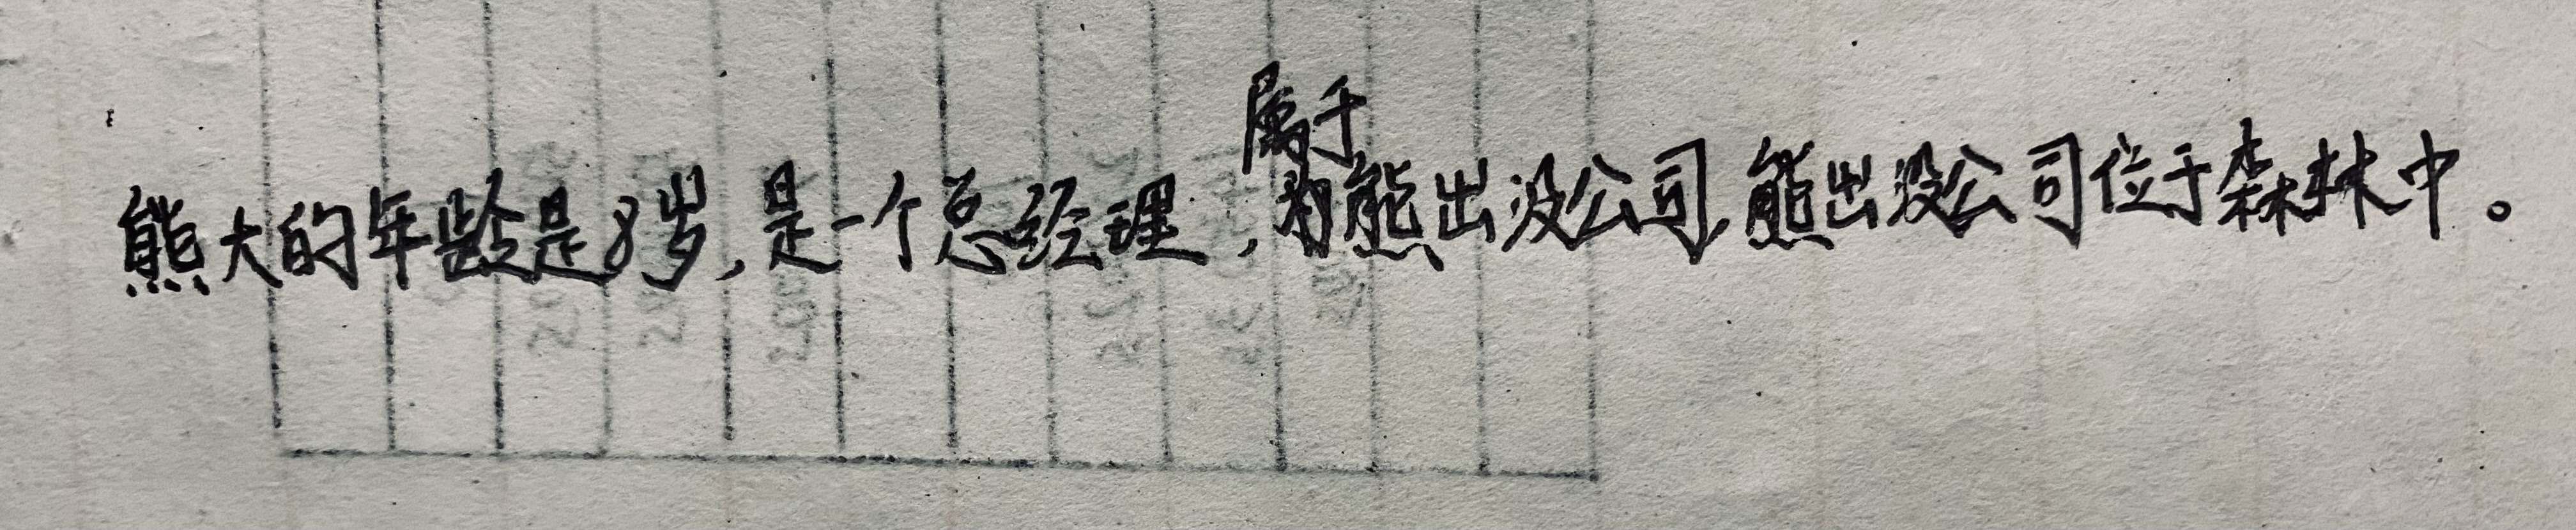 熊大的年龄是8岁,是一个总经理,属于熊出没公司,熊出没公司位于森林中。